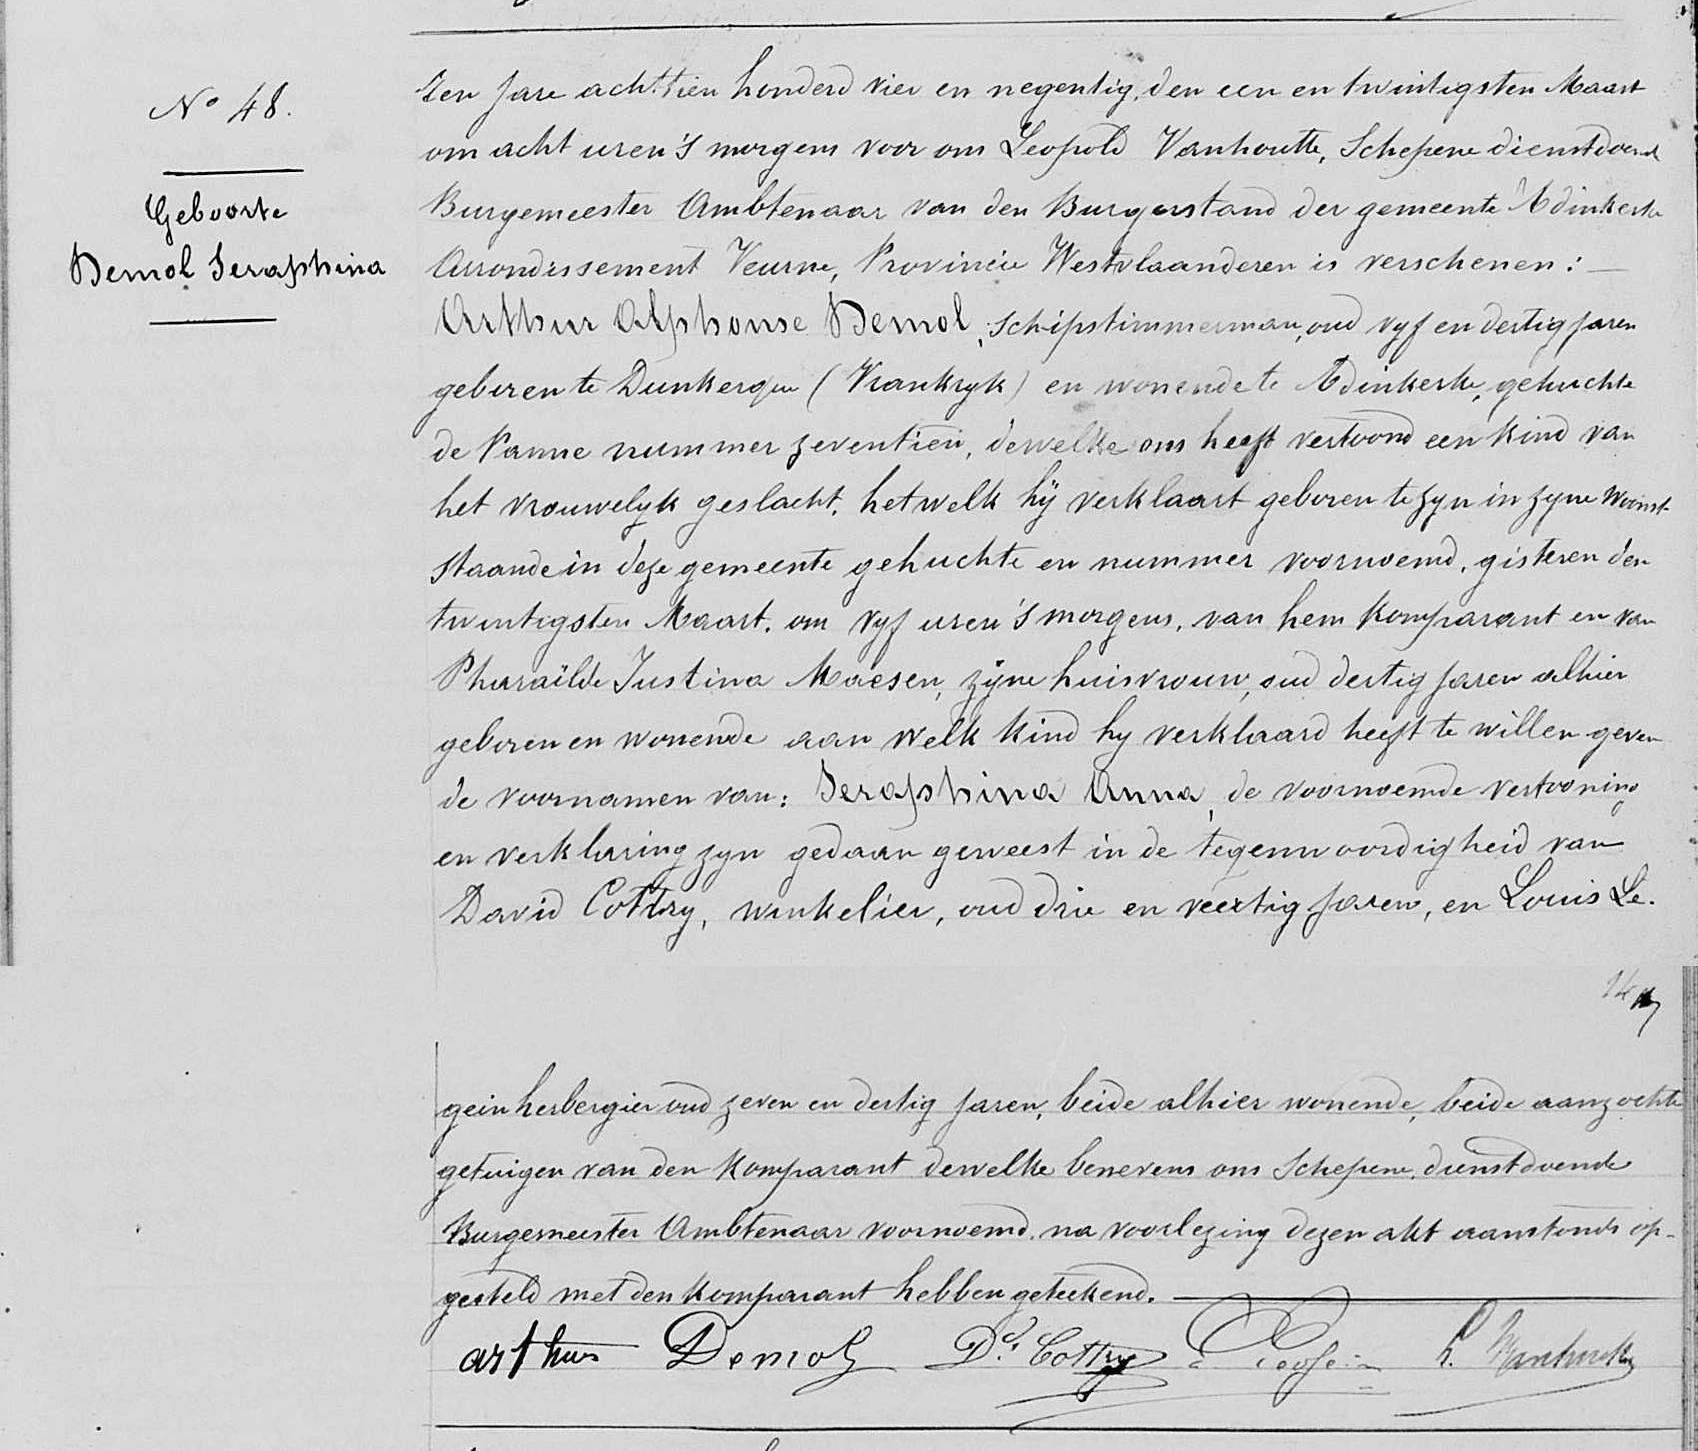 No 48.
Geboorte
Demol Seraphina
Ten Jare acht tien honderd vier en negentig, den een en twintigsten Maart
om acht uren 's morgens voor ons Leopold Vanhoutte, Schepene dienstdoende
Burgemeester Ambtenaar van den Burgerstand der gemeente Adinkerke
Arrondissement Veurne, Provincie Westvlaanderen is verschenen:
Arthur Alphonse Demol, Schipstimmerman, oud vyf en dertig jaren
geboren te Dunkerque (Vrankryk) en wonende te Adinkerke, gehuchte
de Panne nummer zeventien, dewelke ons heeft vertoond een kind van
het vrouwelyk geslacht, hetwelk hÿ verklaart geboren te zyn in zyne Woonst
staande in deze gemeente gehuchte en nummer voornoemd, gisteren den
twintigsten Maart, om vyf uren 's morgens, van hem Komparant en van
Pharaïlde Justina Maesen, zÿne huisvrouw, oud dertig jaren alhier
geboren en wonende aan welk kind hy verklaard heeft te willen geven
de voornamen van: Seraphina Anna, de voornoemde vertooning
en verklaring zyn gedaan geweest in de tegenwoordigheid van
David Cottry, winkelier, oud drie en veertig jaren, en Louis Le-
gein herbergier oud zeven en dertig jaren, beide alhier wonende, beide aanzochte
getuigen van den Komparant dewelke benevens ons Schepene, dienstdoende
Burgemeester Ambtenaar voornoemd, na voorlezing dezen akt aanstonds op-
gesteld met den Komparant hebben geteekend.
arthur Demol Dd. Cottry L. Vanhoutte